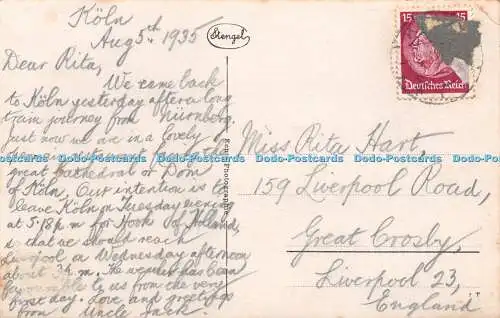 Köln
Aug 5th 1935
Dear Rita,
We came back
to Köln yesterday after a long
train journey from Nürnberg.
Just now we are in a lovely
great Cathedral or Dom
of Köln. Our intention is to
leave Köln on Tuesday evening
at 5.18 p m for Hook of Holland,
so that we should reach
Liverpool on Wednesday afternoon
about m. The weather has been
favourable to us from the very
first day. Love and greetings
from Uncle Jack.
Stengel
15 15
Deutsches Reich
Miss Rita Hart,
159 Liverpool Road,
Great Crosby,
Liverpool 23,
England
Dodo-Postcards Dodo-Postcards Dodo-Postcards Dodo-Postcards Dodo-Postcards